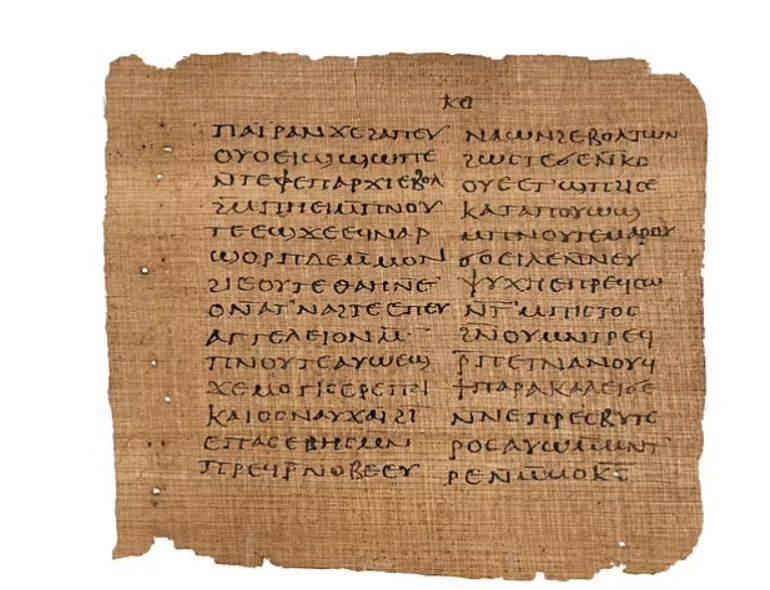 ⲕⲁ
ⲡⲁⲓⲣⲁⲛϫⲉϩⲁⲡⲉⲩ
ⲟⲩⲟⲉⲓϣϣⲱⲡⲉ
ⲛⲧⲉϥⲉⲡⲁⲣⲭⲓⲉⲃⲟⲗ
ϩⲙⲡⲏⲉⲓⲙ̄ⲡⲛⲟⲩ
ⲧⲉⲉϣϫⲉⲉϥⲛⲁⲣ
ϣⲟⲣⲡⲇⲉⲙ̄ⲙⲟⲛ
ϩⲓⲉⲟⲩⲧⲉⲑⲁⲏⲛⲉⲧ
ⲟⲛ̄ⲁⲧⲛⲁϩⲧⲉⲉⲡⲉⲩ
ⲁⲅⲅⲉⲗⲉⲓⲟⲛⲙ̄
ⲡⲛⲟⲩⲧⲉⲁⲩⲱⲉϣ
ϫⲉⲙⲟⲅⲓⲥⲉⲣⲉⲡⲇⲓ
ⲕⲁⲓⲟⲥⲛⲁⲩϫⲁⲓϩⲓ
ⲉⲡⲁⲥⲉⲃⲏⲥⲙⲛ
ⲡⲣⲉϥⲣ̄ⲛⲟⲃⲉⲉⲩ
ⲛⲁⲱⲛϩⲉⲃⲟⲗⲧⲱⲛ
ϩⲱⲥⲧⲉϭⲉⲛ̄ⲕⲟ
ⲟⲩⲉⲉⲧϣⲡϩⲓⲥⲉ
ⲕⲁⲧⲁⲡⲟⲩⲱϣ
ⲙⲡⲛⲟⲩⲧⲉⲙⲁⲣⲟⲩ
ϭⲟⲉⲓⲗⲉⲛ̄ⲛⲉⲩ
ⲯⲩⲭⲏⲉⲡⲣⲉϥⲥⲱ
ⲛ̄ⲧⲙ̄ⲡⲓⲥⲧⲟⲥ
ϩⲛⲟⲩⲙⲛⲧⲣⲉϥ
ⲣ̄ⲡⲉⲧⲛⲁⲛⲟⲩϥ
ϯⲡⲁⲣⲁⲕⲁⲗⲉⲓϭⲉ
ⲛⲛⲉⲡⲣⲉⲥⲃⲩⲧⲉ
ⲣⲟⲥⲁⲩⲱⲙⲙⲛⲧ
ⲣⲉⲛⲙ̄ⲙⲟⲕϩ